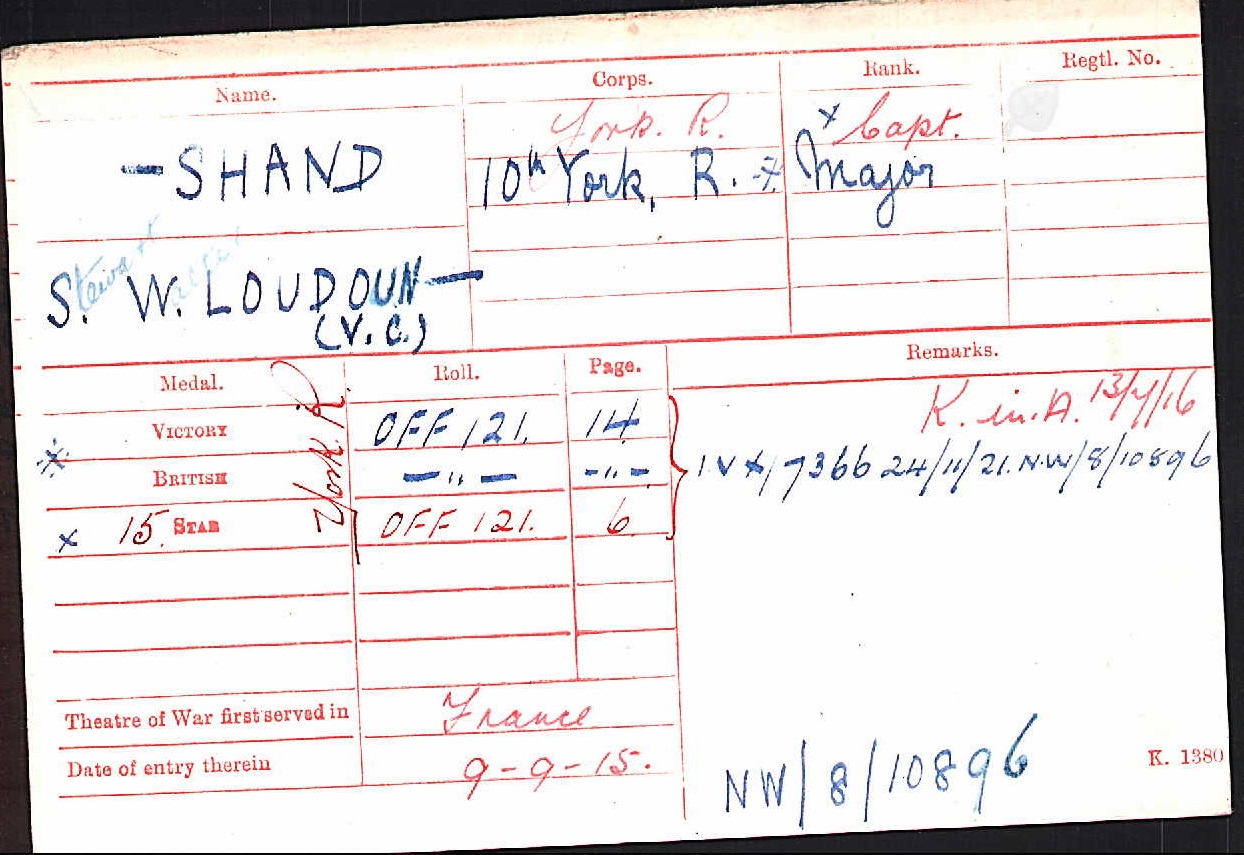 Name. Corps. Rank. Regtl. No.
York. R. x Capt.
- SHAND 10th York, R. Major
Stewart
S. W. LOUDOUN-
(V.C.)
Medal. Roll. Page. Remarks.
York R.
K. in. A. 13/7/16
VICTORY OFF 121. 14
BRITISH — " — - " - IVX/7366 24/11/21. N.W/8/10896
x 15 STAR OFF 121. 6
Theatre of War first served in France
Date of entry therein 9-9-15.
NW/8/10896 K. 1380